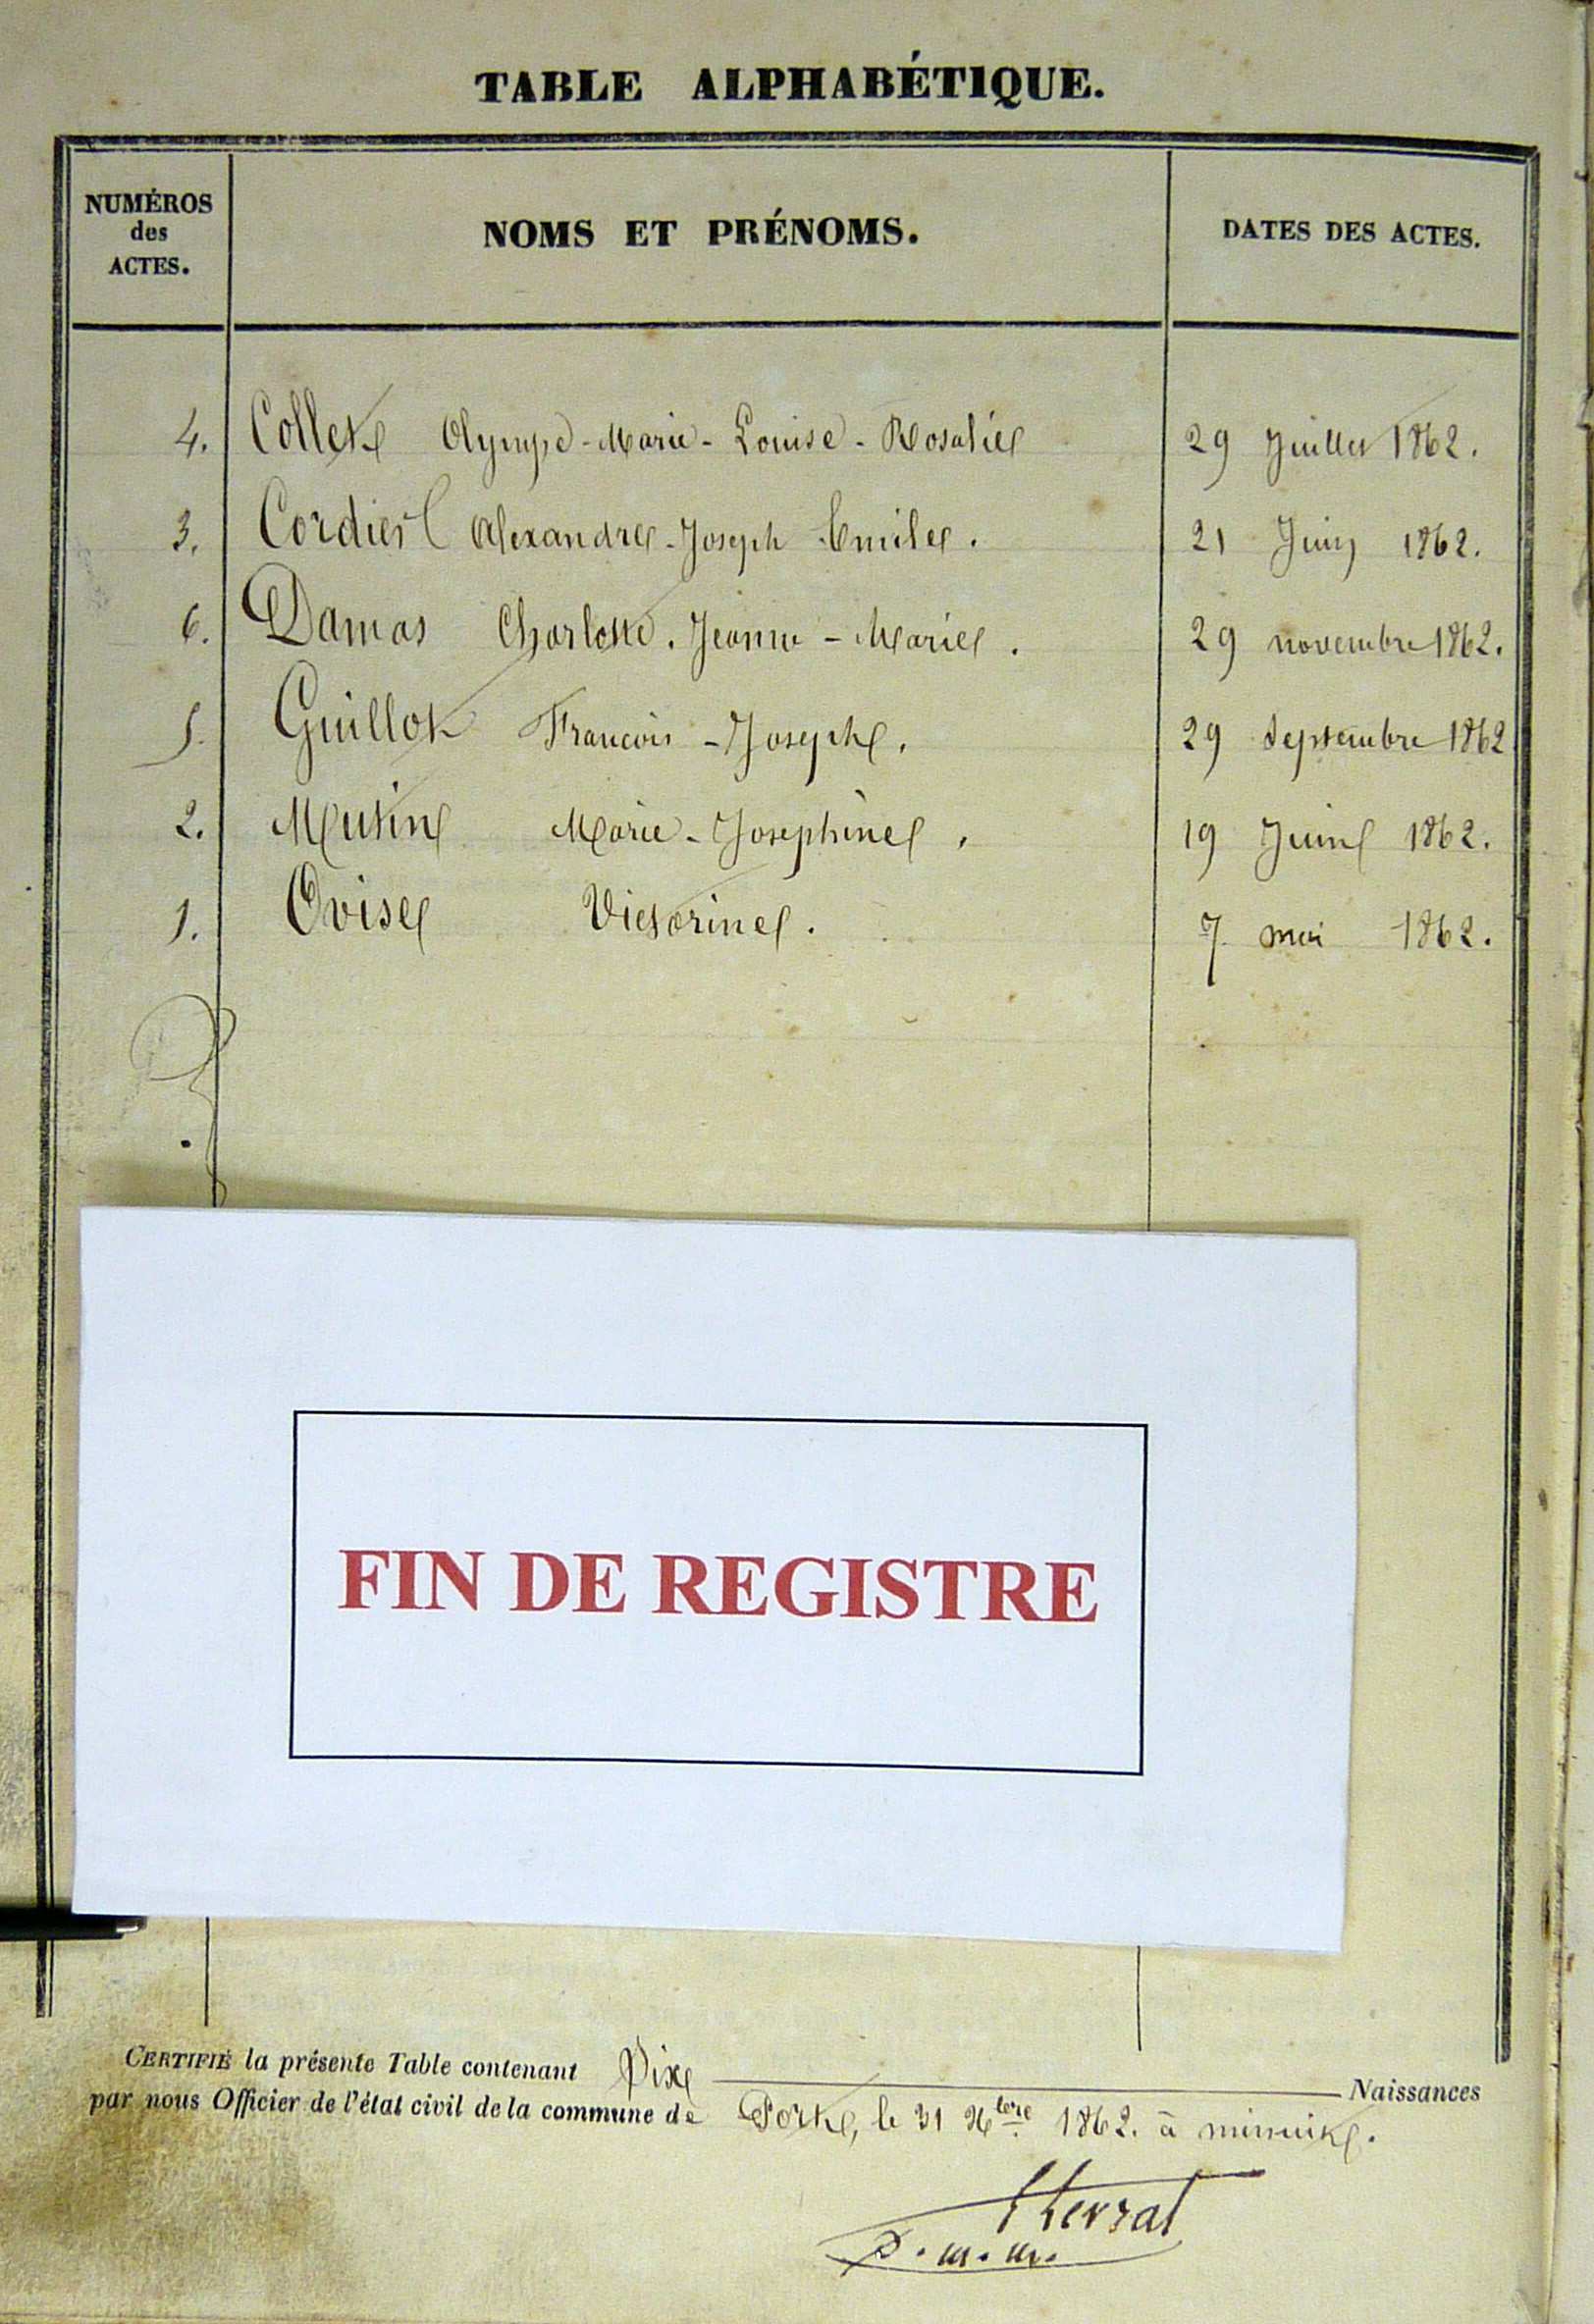 TABLE ALPHABÉTIQUE.
NUMÉROS
des
ACTES.
NOMS ET PRÉNOMS.
DATES DES ACTES.
4. Collet Olympe-Marie-Louise-Rosalie 29 Juillet 1862.
3. Cordier Alexandre-Joseph Emile. 21 Juin 1862.
6. Damas Charlotte. Jeanne-Marie. 29 novembre 1862.
5. Guillot Francois-Joseph. 29 Septembre 1862
2. Mutin Marie-Josephine. 19 Juin 1862.
1. Ovise Victorine. 7 mai 1862.
FIN DE REGISTRE
CERTIFIÉ la présente Table contenant Six Naissances
par nous Officier de l'état civil de la commune de Port, le 31 Xbre 1862. à minuit.